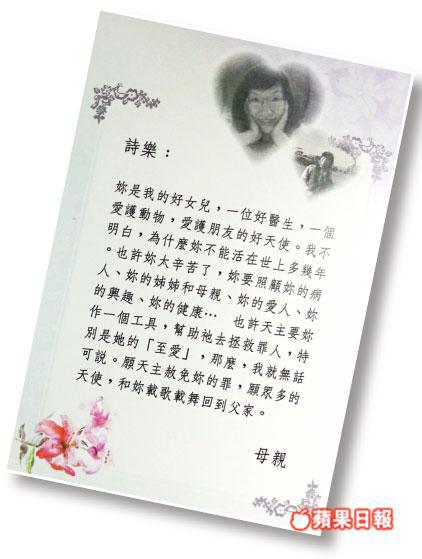 詩樂：
妳是我的好女兒，一位好醫生，一個
愛護動物，愛護朋友的好天使。我不
明白，為什麼妳不能活在世上多幾年
。也許妳大辛苦了，妳要照顧妳的病
人、妳的姊姊和母親、妳的愛人、妳
的興趣、妳的健康… 也許天主要妳
作一個工具，幫助祂去拯救罪人，特
別是她的「至愛」，那麼，我就無話
可說。願天主赦免妳的罪，願眾多的
天使，和妳載歌載舞回到父家。
母親
蘋果日報